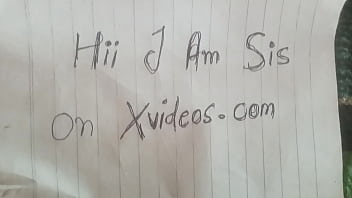 Hii I Am Sis
On Xvideos.com